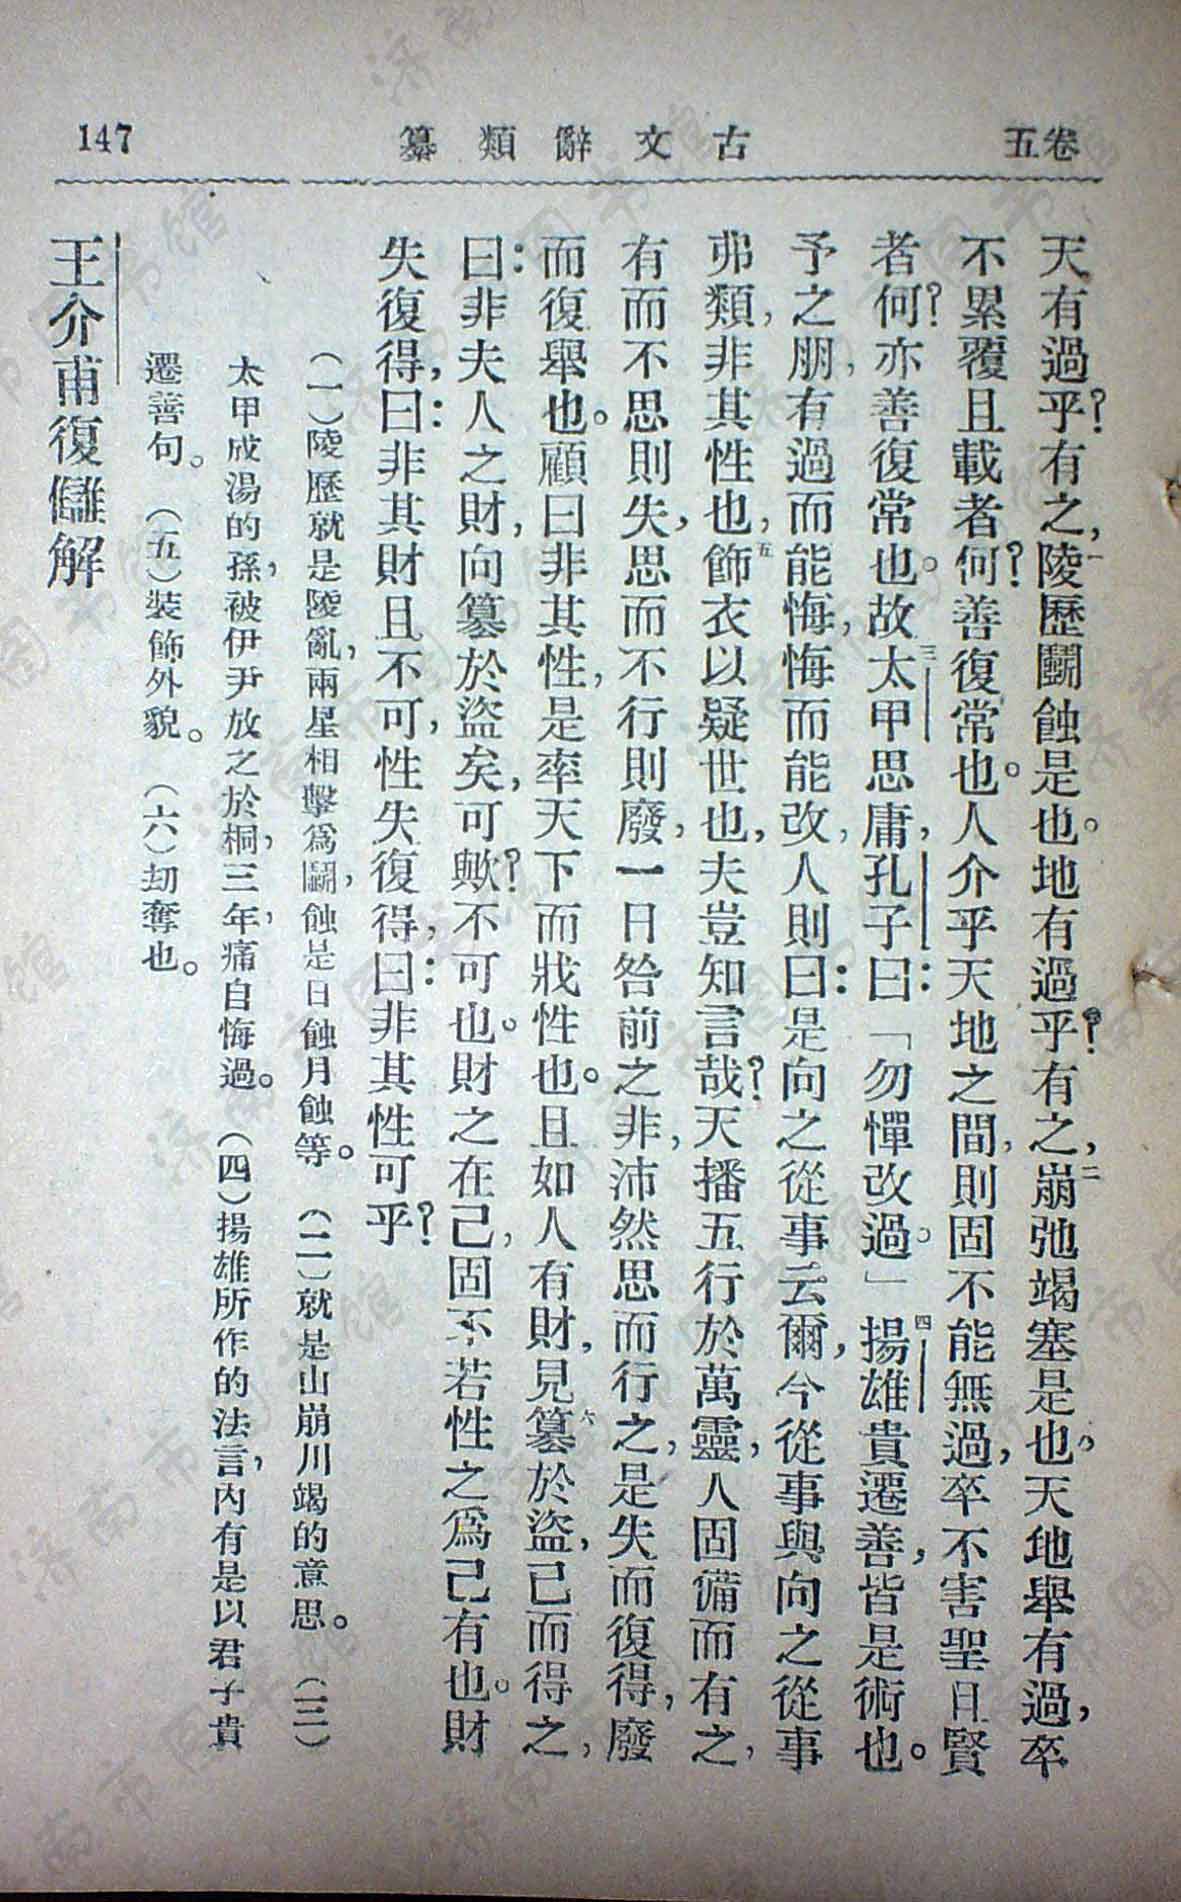 卷五
古文辭類纂
147
天有過乎?有之,一陵歷鬭蝕是也。地有過乎?有之,二崩弛竭塞是也。天地舉有過,卒
不累覆且載者何?善復常也。人介乎天地之間,則固不能無過,卒不害聖且賢
者何?亦善復常也。故三太甲思庸,孔子曰:「勿憚改過。」四揚雄貴遷善,皆是術也。
予之朋,有過而能悔,悔而能改,人則曰:是向之從事云爾,今從事與向之從事
弗類,非其性也,五飾衣以疑世也,夫豈知言哉?天播五行於萬靈,人固備而有之,
有而不思則失,思而不行則廢,一日咎前之非,沛然思而行之,是失而復得,廢
而復舉也。顧曰非其性,是率天下而戕性也。且如人有財,見六篡於盜,已而得之,
曰:非夫人之財,向篡於盜矣,可歟?不可也。財之在己,固不若性之爲己有也。財
失復得,曰:非其財且不可,性失復得,曰:非其性可乎?
(一)陵歷就是陵亂,兩星相擊爲鬭,蝕是日蝕月蝕等。(二)就是山崩川竭的意思。(三)
太甲成湯的孫,被伊尹放之於桐,三年,痛自悔過。(四)揚雄所作的法言,內有是以君子貴
遷善句。(五)裝飾外貌。(六)刧奪也。
王介甫復讎解
济南市图书馆